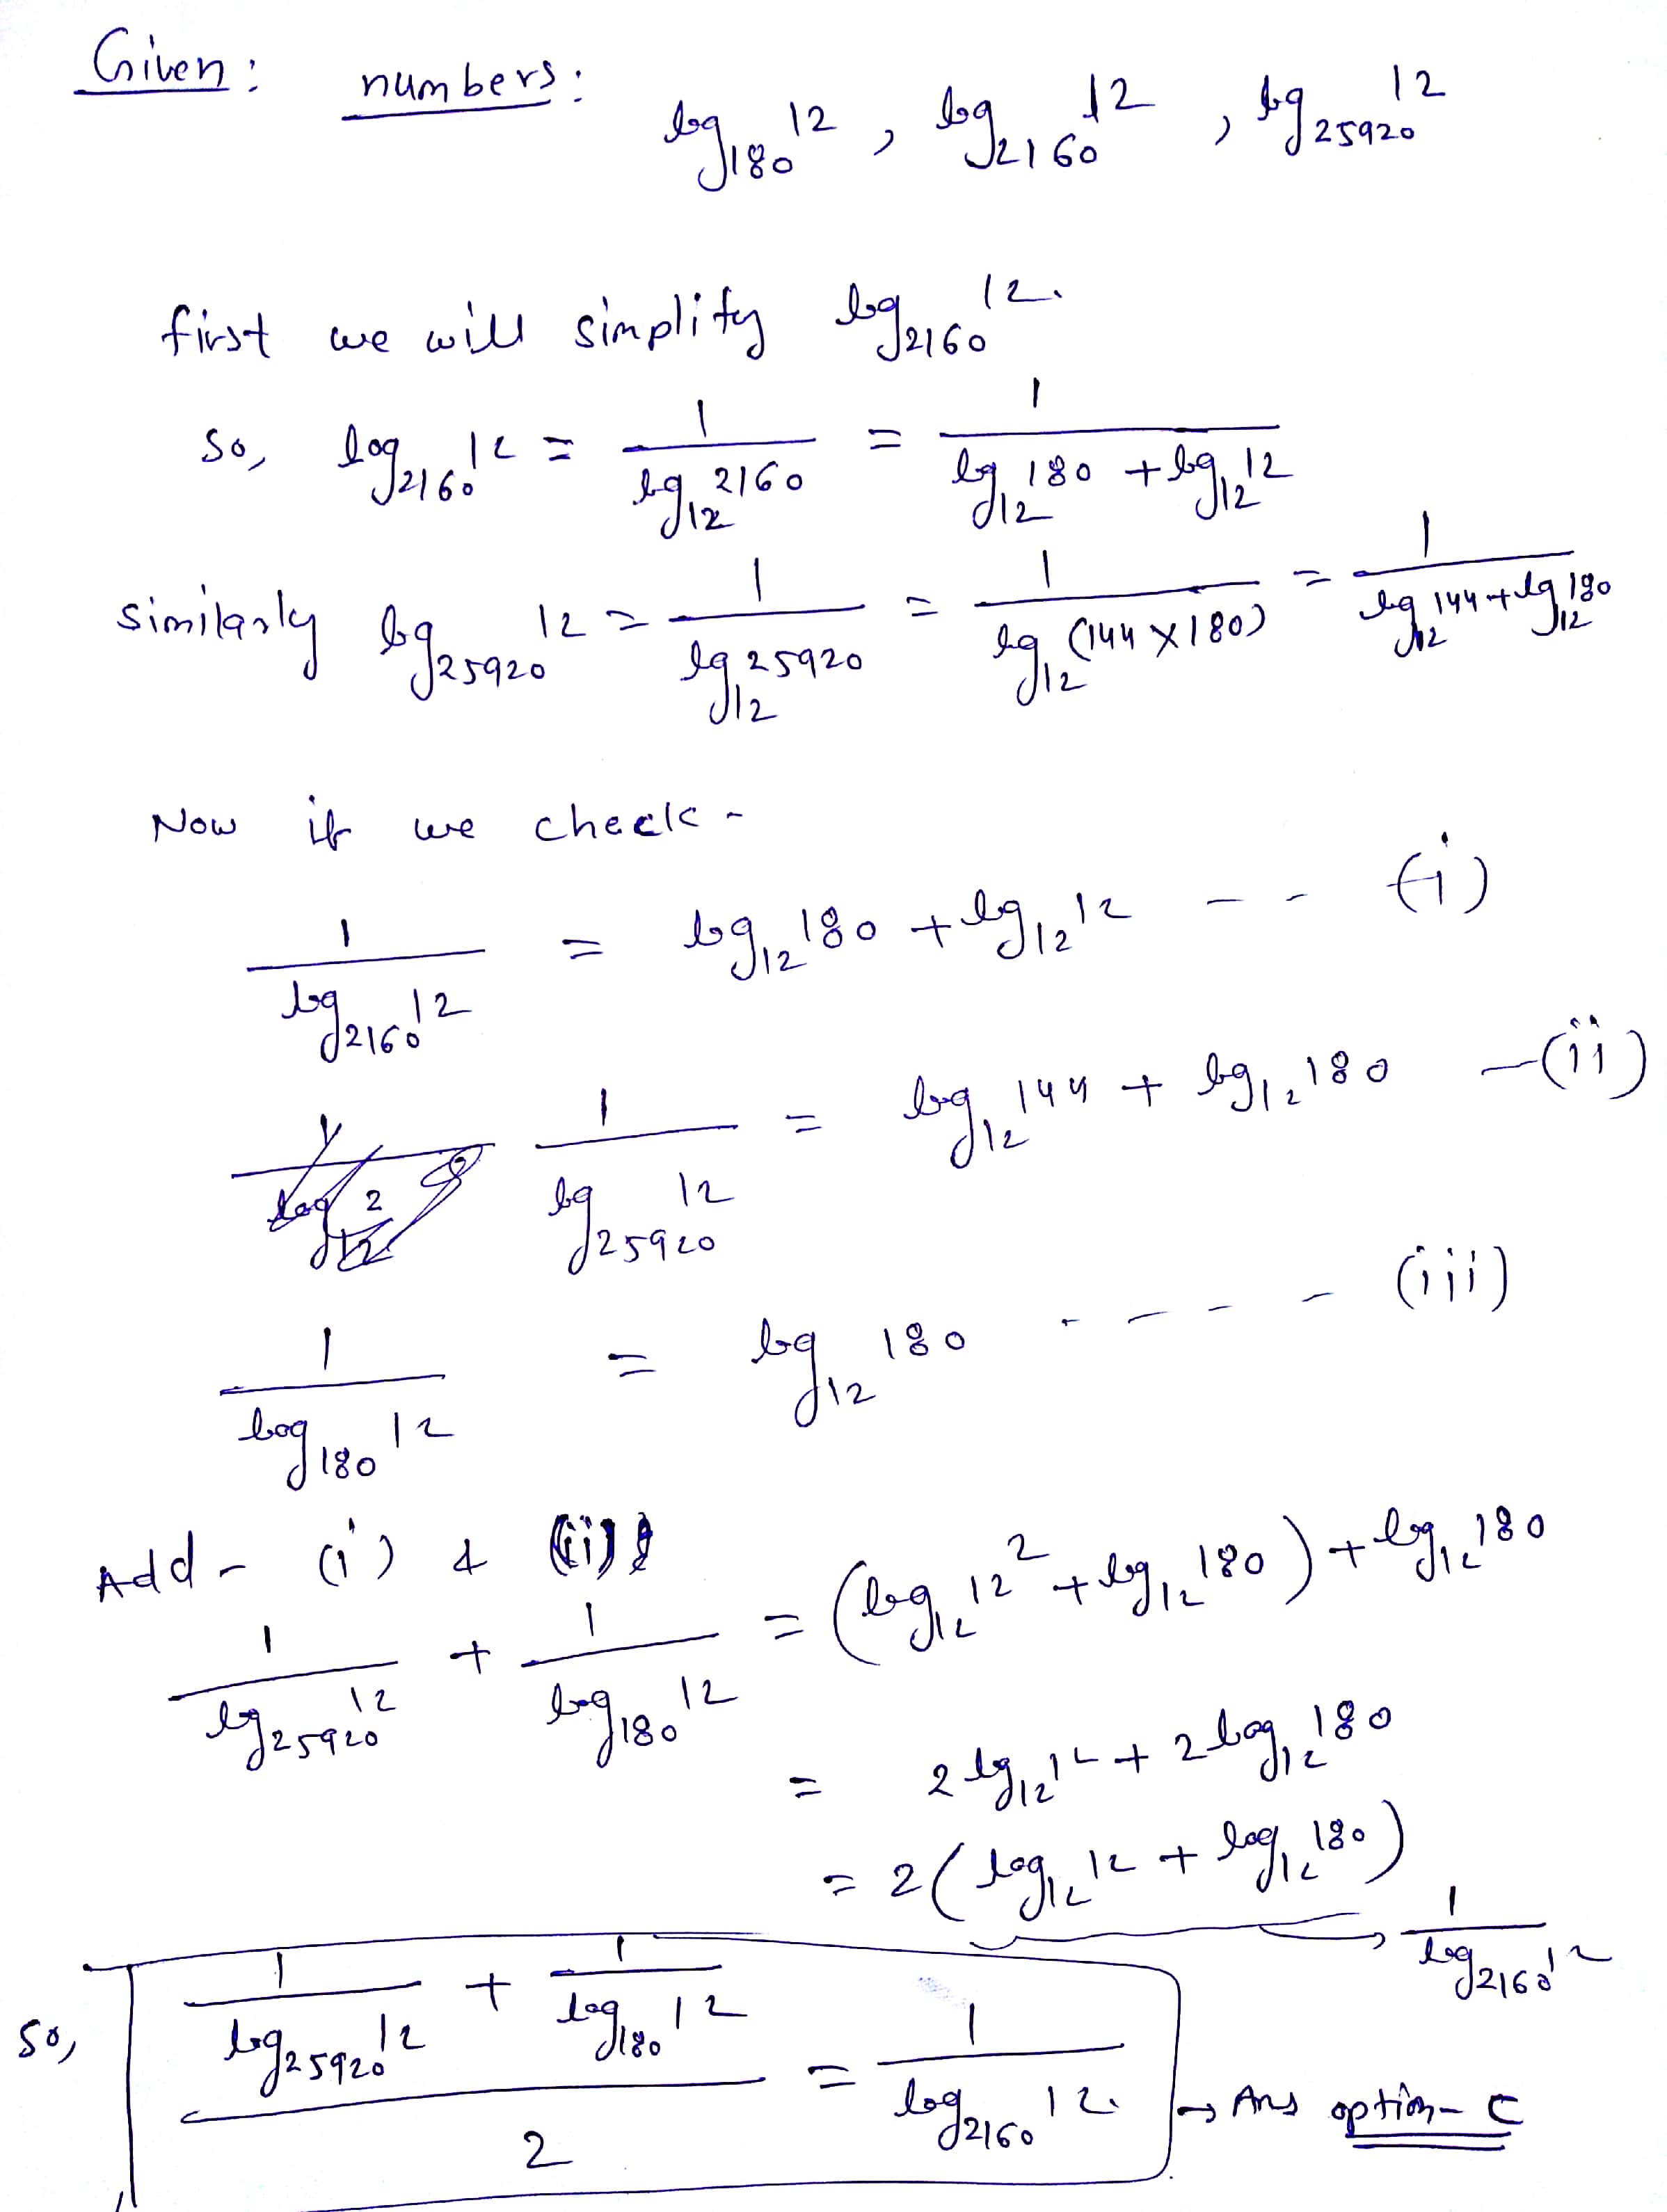 Given: numbers: log₁₈₀12 , log₂₁₆₀12 , log₂₅₉₂₀12
first we will simplify log₂₁₆₀12.
So, log₂₁₆₀12 = 1/(log₁₂2160) = 1/(log₁₂180 + log₁₂12)
similarly log₂₅₉₂₀12 = 1/(log₁₂25920) = 1/(log₁₂(144 × 180)) = 1/(log₁₂144 + log₁₂180)
Now if we check -
1/(log₂₁₆₀12) = log₁₂180 + log₁₂12 -- (i)
1/(log₂₅₉₂₀12) = log₁₂144 + log₁₂180 - (ii)
1/(log₁₈₀12) = log₁₂180 ---- (iii)
Add - (i) & (ii)
1/(log₂₅₉₂₀12) + 1/(log₁₈₀12) = (log₁₂12² + log₁₂180) + log₁₂180
= 2 log₁₂12 + 2 log₁₂180
= 2(log₁₂12 + log₁₂180) → 1/(log₂₁₆₀12)
so, (1/(log₂₅₉₂₀12) + 1/(log₁₈₀12))/2 = 1/(log₂₁₆₀12) → Ans option - C